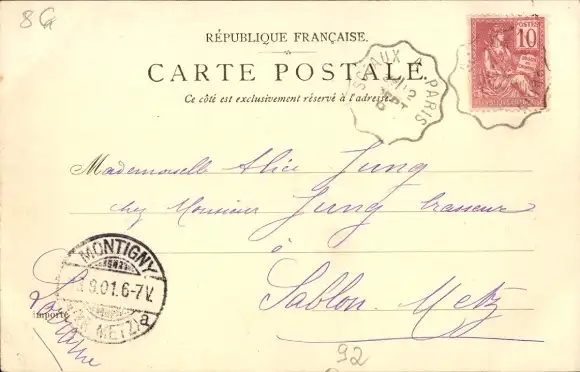 86
RÉPUBLIQUE FRANÇAISE.
CARTE POSTALE.
Ce côté est exclusivement réservé à l'adresse.
SCEAUX
PARIS
POSTES
10
Mademoiselle Alice Jung
chez Monsieur Jung brasseur
à
Sablon. Metz
Lorraine
importé
MONTIGNY
9.01.6-7V.
METZ) a
92